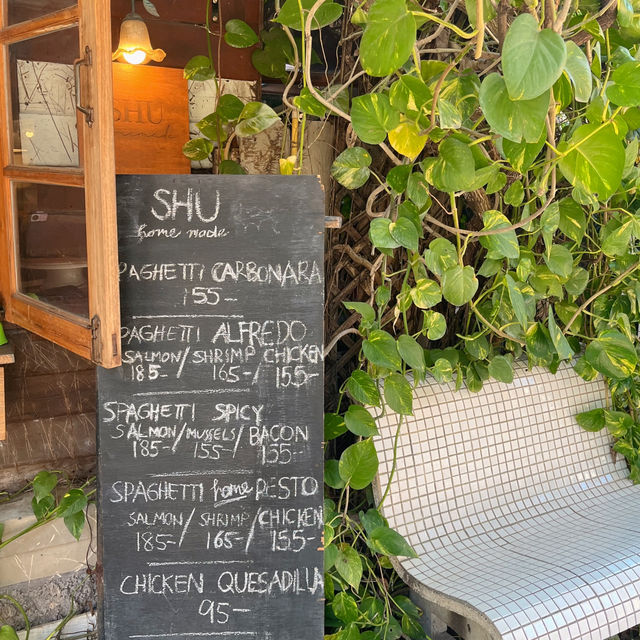 SHU
SHU
home made
PAGHETTI CARBONARA
155-
PAGHETTI ALFREDO
SALMON/SHRIMP CHICKEN
185- / 165-/ 155-
SPAGHETTI SPICY
SALMON/MUSSELS/BACON
185- 155- 155-
SPAGHETTI home PESTO
SALMON/SHRIMP/CHICKEN
185-/ 165-/ 155-
CHICKEN QUESADILLA
95-